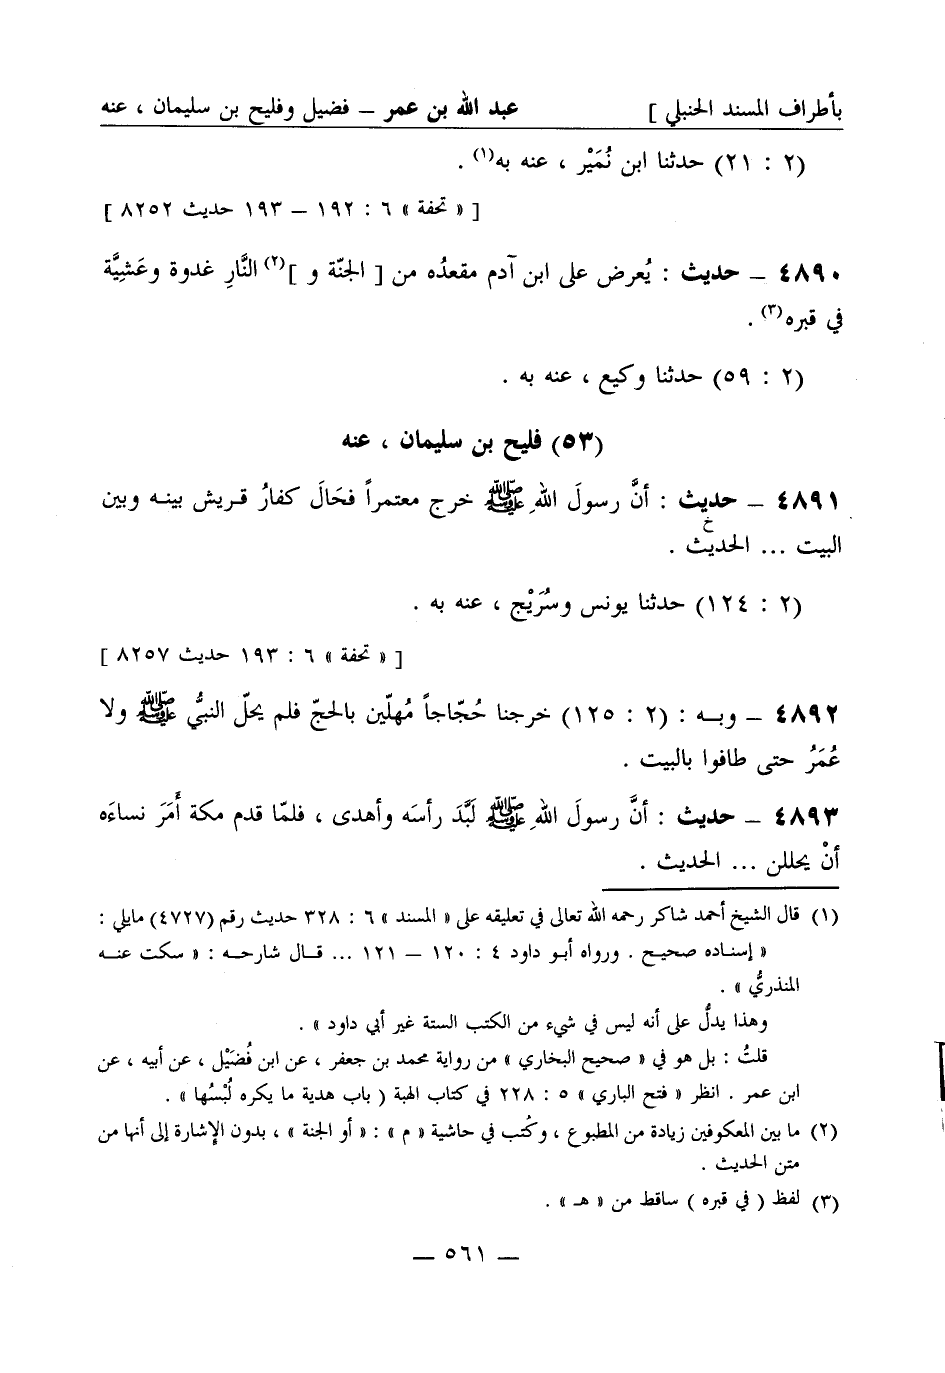 بأطراف المسند الحنبلي ] عبد الله بن عمر – فضيل وفليح بن سليمان ، عنه
(٢ : ٢١) حدثنا ابن نُمَيْر ، عنه به(١) .
[ « تحفة » ٦ : ١٩٢ – ١٩٣ حديث ٨٢٥٢ ]
٤٨٩٠ – حديث : يُعرض على ابن آدم مقعدُه من [ الجنّة و ](٢) النَّارِ غدوة وعَشِيَّة
في قبره(٣) .
(٢ : ٥٩) حدثنا وكيع ، عنه به .
(٥٣) فليح بن سليمان ، عنه
٤٨٩١ – حديث : أنَّ رسولَ اللهِ ﷺ خرج معتمراً فحَالَ كفارُ قريش بينه وبين
خ
البيت ... الحديث .
(٢ : ١٢٤) حدثنا يونس وسُرَيْج ، عنه به .
[ « تحفة » ٦ : ١٩٣ حديث ٨٢٥٧ ]
٤٨٩٢ – وبه : (٢ : ١٢٥) خرجنا حُجّاجاً مُهلّين بالحجّ فلم يحلّ النبيُّ ﷺ ولا
عُمَرُ حتى طافوا بالبيت .
٤٨٩٣ – حديث : أنَّ رسولَ اللهِ ﷺ لَبَّدَ رأسَه وأهدى ، فلمّا قدم مكة أَمَرَ نساءَه
أنْ يحللن ... الحديث .
(١) قال الشيخ أحمد شاكر رحمه الله تعالى في تعليقه على « المسند » ٦ : ٣٢٨ حديث رقم (٤٧٢٧) مايلي :
« إسناده صحيح . ورواه أبو داود ٤ : ١٢٠ – ١٢١ ... قال شارحه : « سكت عنه
المنذريُّ » .
وهذا يدلُّ على أنه ليس في شيء من الكتب الستة غير أبي داود » .
قلتُ : بل هو في « صحيح البخاري » من رواية محمد بن جعفر ، عن ابن فُضَيْل ، عن أبيه ، عن
ابن عمر . انظر « فتح الباري » ٥ : ٢٢٨ في كتاب الهبة ( باب هدية ما يكره لُبْسُها » .
(٢) ما بين المعكوفين زيادة من المطبوع ، وكُتب في حاشية « م » : « أو الجنة » ، بدون الإشارة إلى أنها من
متن الحديث .
(٣) لفظ ( في قبره ) ساقط من « هـ » .
– ٥٦١ –